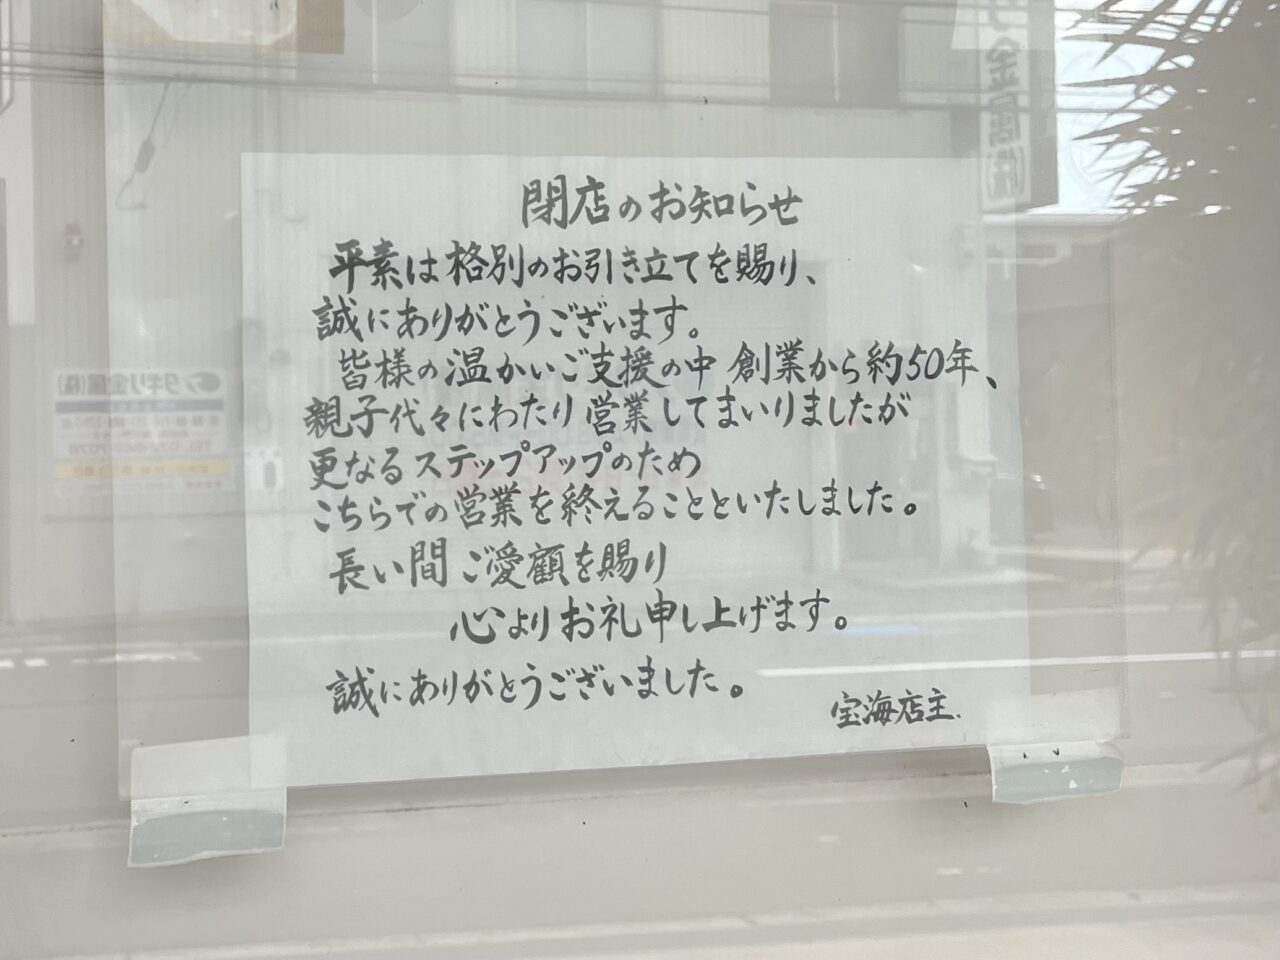 閉店のお知らせ
平素は格別のお引き立てを賜り、
誠にありがとうございます。
皆様の温かいご支援の中 創業から約50年、
親子代々にわたり営業してまいりましたが
更なるステップアップのため
こちらでの営業を終えることといたしました。
長い間ご愛顧を賜り
心よりお礼申し上げます。
誠にありがとうございました。
宝海店主.